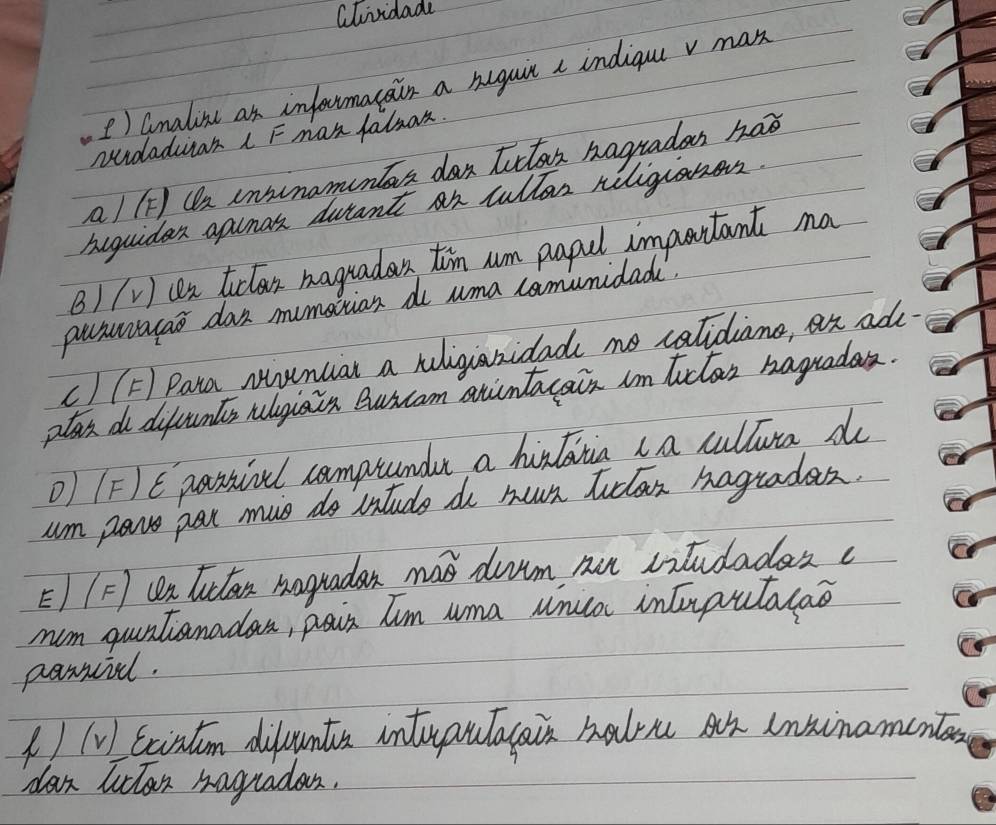 Atividade
1) Analise as informações a seguir e indique v nas
verdadeiras e F nas falsas.
a) (F) Os ensinamentos dos textos sagrados são
seguidos apenas durante os cultos religiosos.
B) (v) Os textos sagrados têm um papel importante na
preservação das memórias de uma comunidade.
c) (F) Para vivenciar a religiosidade no cotidiano, os ade-
ptos de diferentes religiões Buscam orientações em textos sagrados.
D) (F) É possível compreender a história e a cultura de
um povo por meio do estudo de seus textos sagrados.
E) (F) Os textos sagrados não devem ser estudados e
nem questionados, pois tem uma única interpretação
possível.
f) (v) Existem diferentes interpretações sobre os ensinamentos
dos textos sagrados.